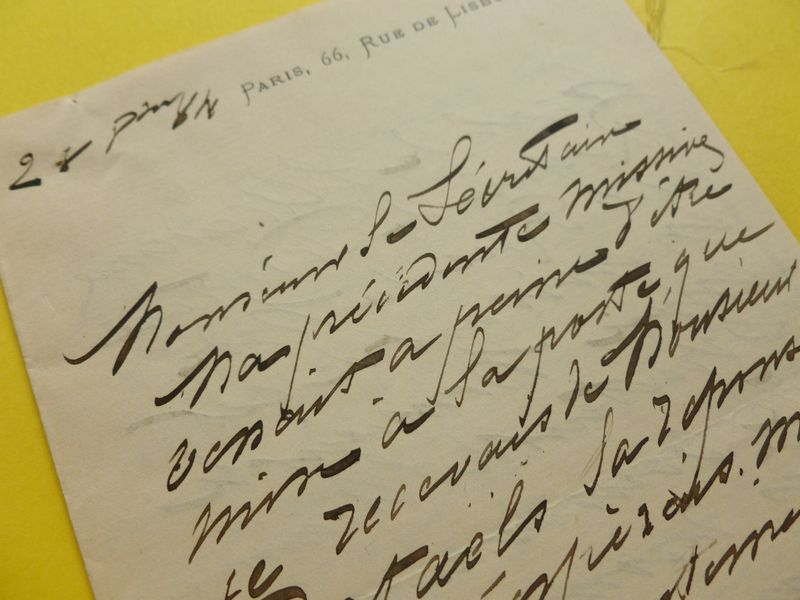 PARIS, 66, RUE DE LISB
Monsieur le Sécrétaire
Ma précédente missive
venait a peine d'être
mise à la poste, que
je recevais de Monsieur
la répons
espérais. M